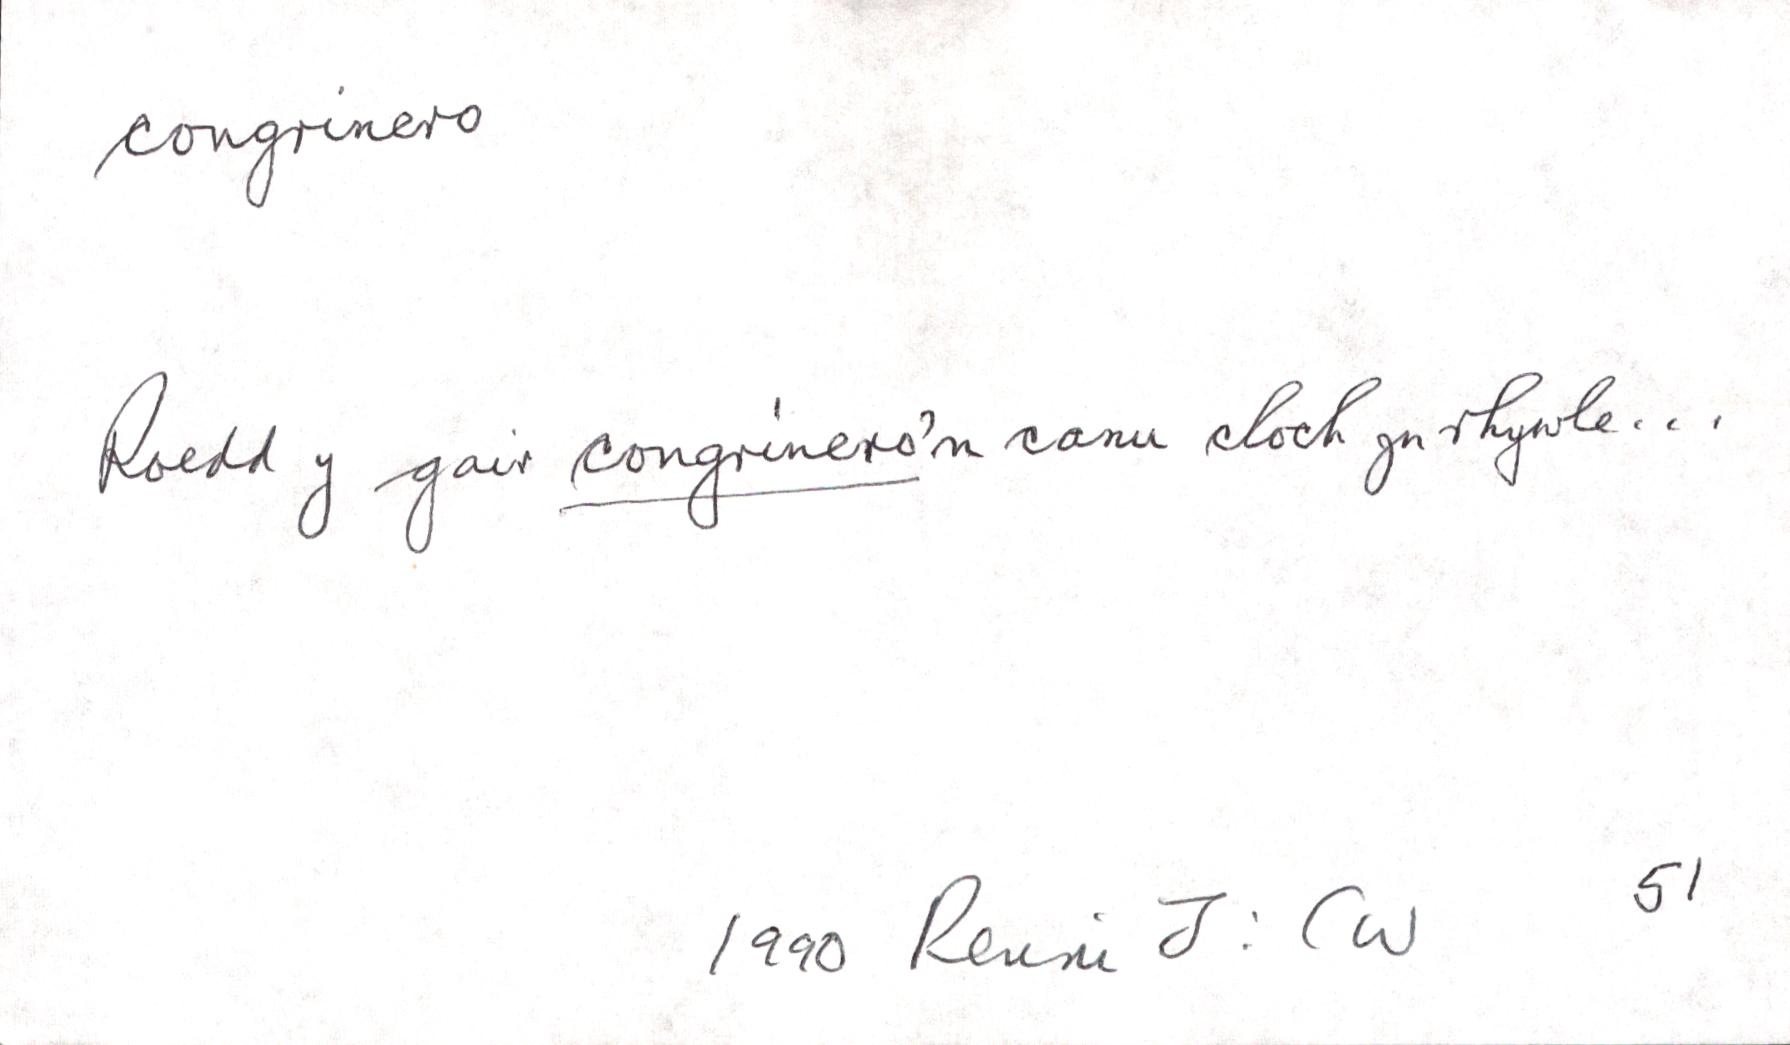 congrinero
Roedd y gair congrinero'n canu cloch yn rhywle...
51
1990 Rhiannon J: CW